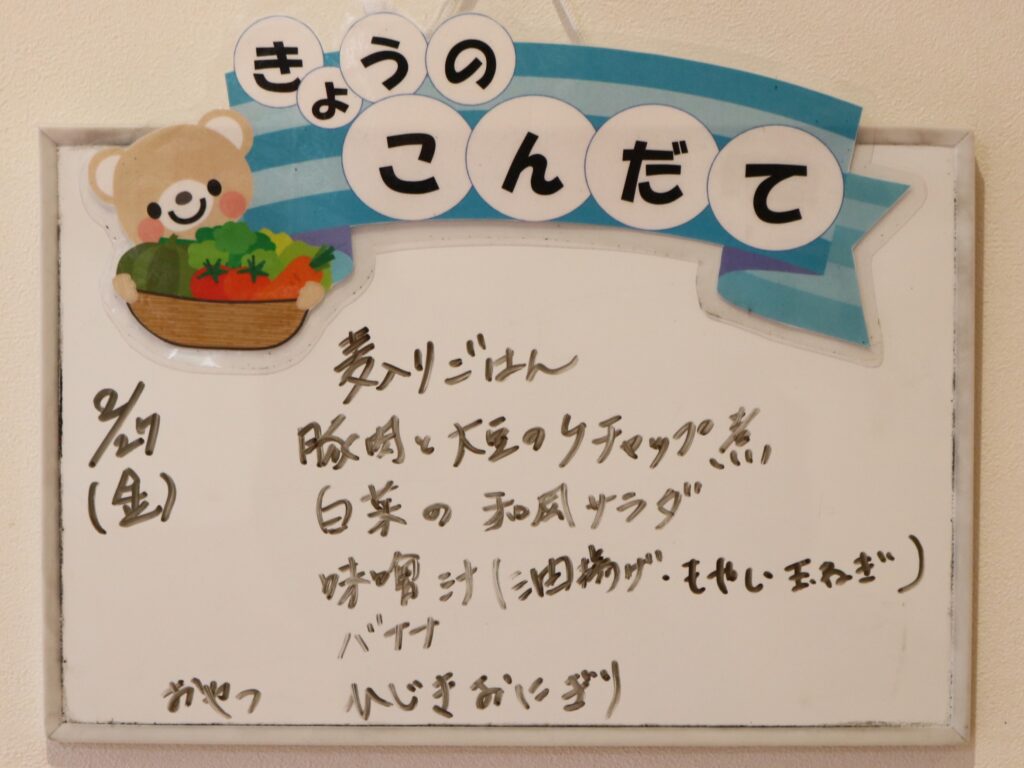 きょうの
こんだて
麦入りごはん
2/27
(金)
豚肉と大豆のケチャップ煮
白菜の和風サラダ
味噌汁(油揚げ・もやし玉ねぎ)
バナナ
おやつ ひじきおにぎり